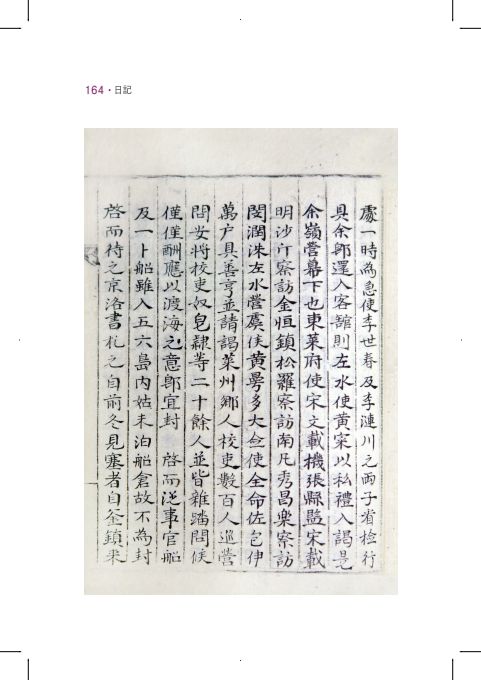 164 · 日記
處一時為急使李世春及李漣川之兩子省檢行
具余卽還入客館則左水使黃寀以私禮入謁是
余嶺營幕下也東萊府使宋文載機張縣監宋載
明沙斤察訪金恒鎮松羅察訪南凡秀昌樂察訪
閔潤洙左水營虞侯黃 多大僉使全命佐包伊
萬户具善亨並請謁萊州鄒人校吏數百人巡營
問安將校吏奴皂隸等二十餘人並皆雜踏問候
僅僅酬應以渡海之意卽宜封 啓而從事官船
及一卜船雖入五六島内姑未泊船倉故不為封
啓而待之京洛書札之自前冬見塞者自釜鎮来